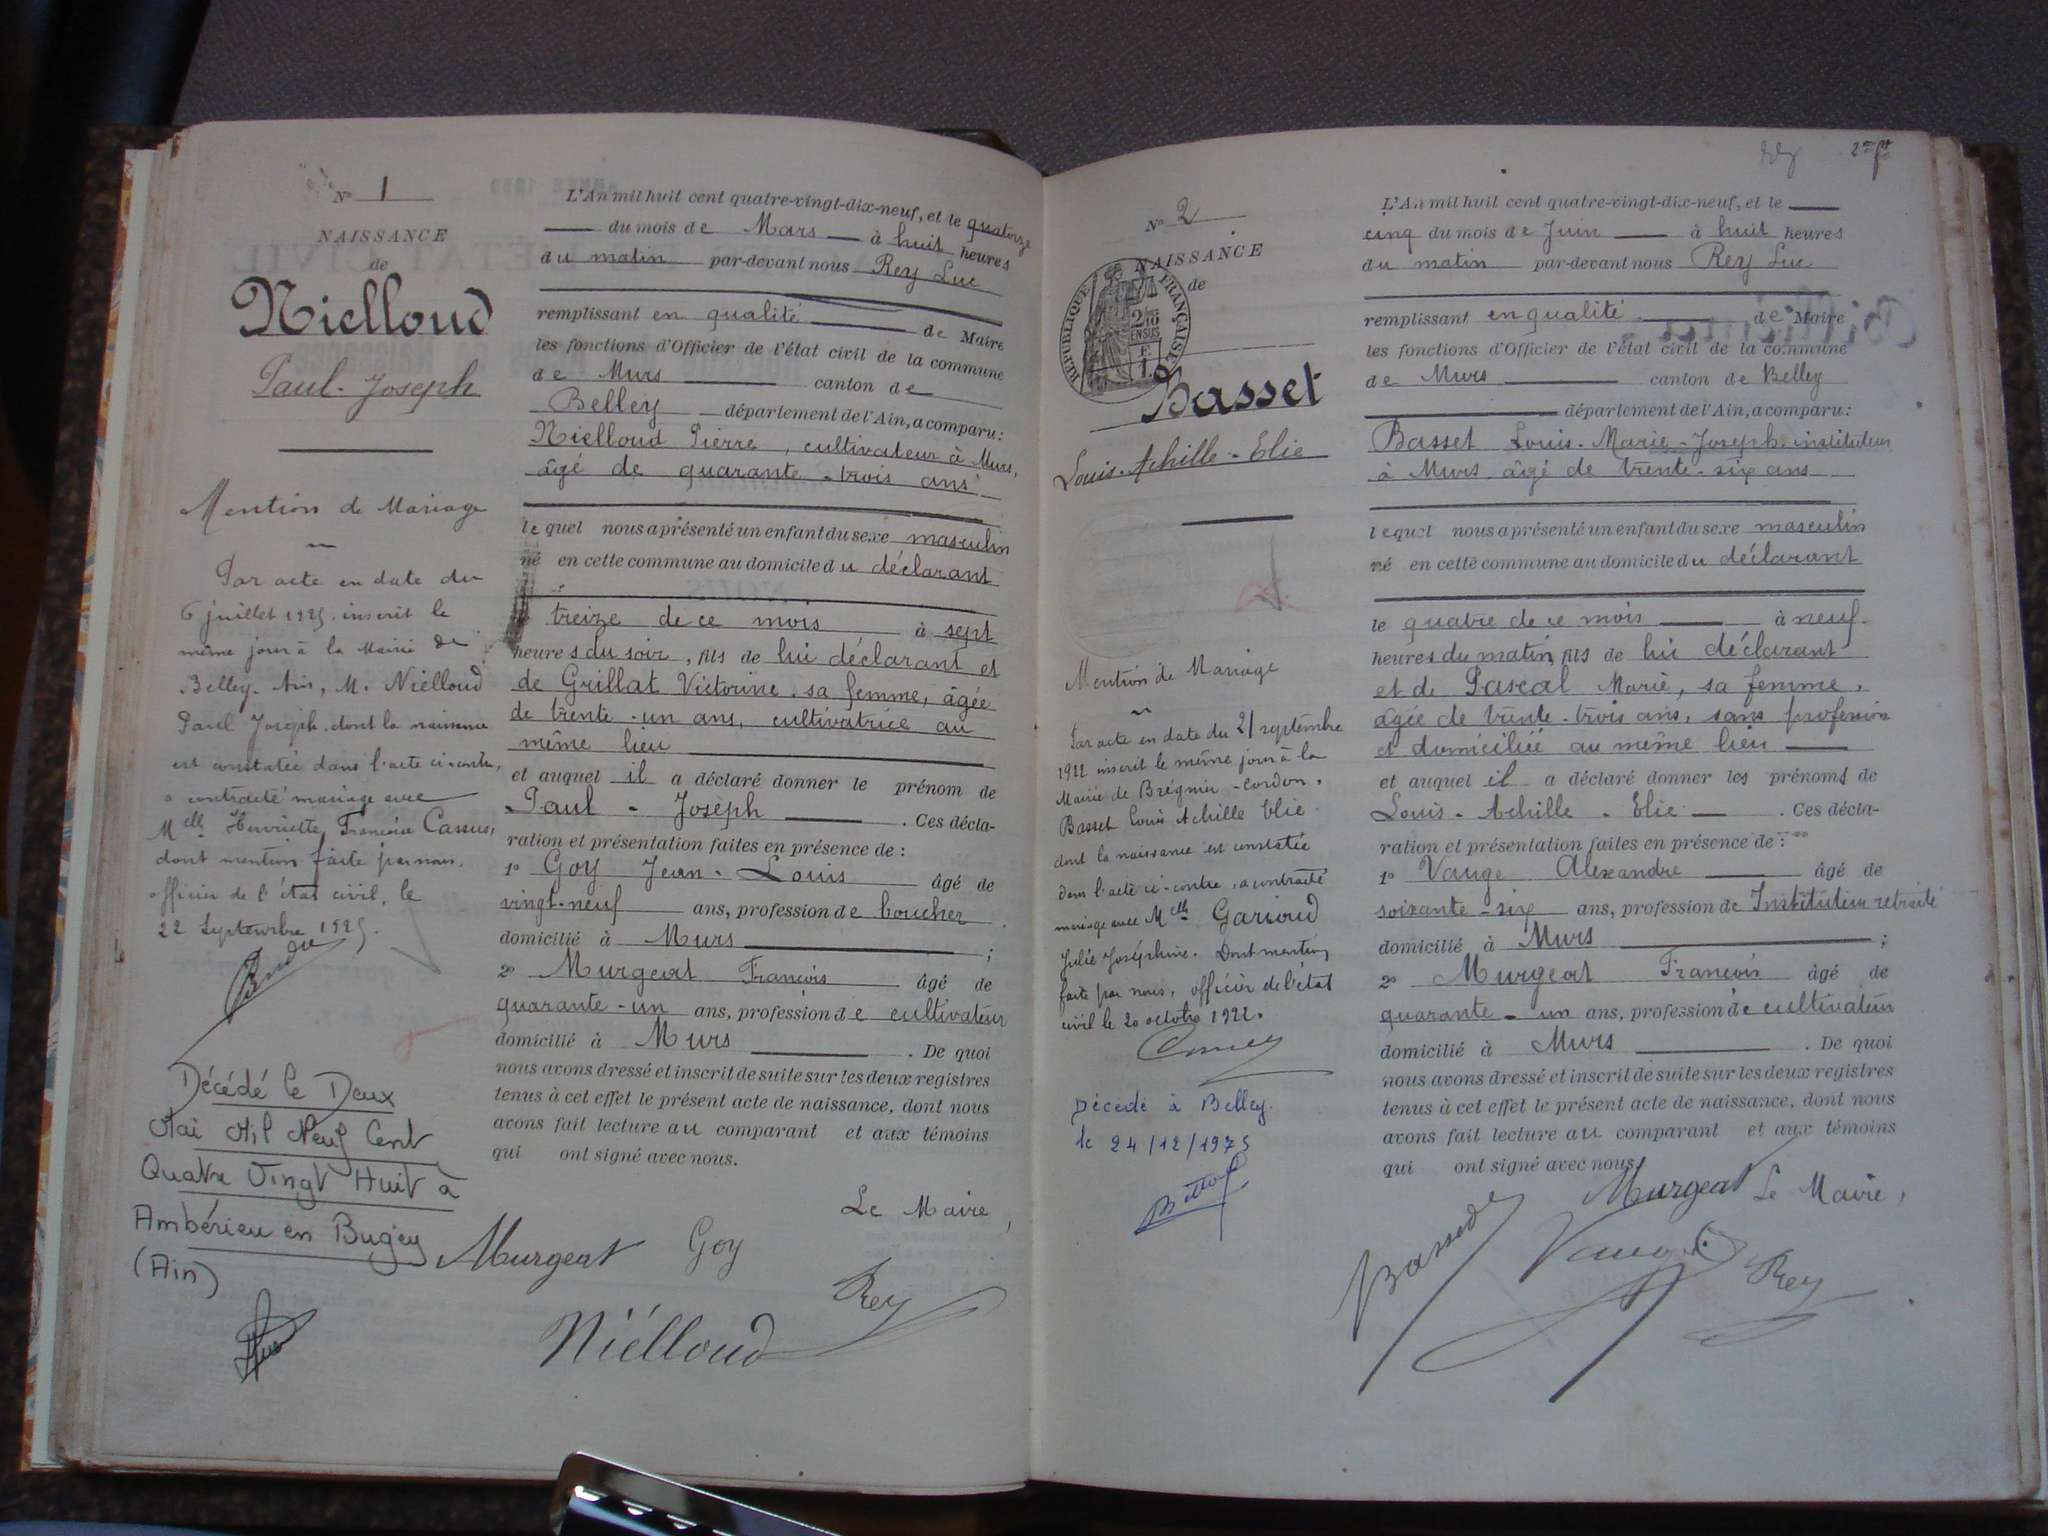 N° 1
NAISSANCE
de
Nielloud
Paul-Joseph
Mention de Mariage
Par acte en date du
6 juillet 1925, inscrit le
même jour à la Mairie de
Belley-Ain, M. Nielloud
Paul Joseph dont la naissance
est constatée dans l'acte ci-contre,
a contracté mariage avec
Melle Henriette Françoise
dont mention faite par nous,
officier de l'état civil, le
22 Septembre 1925.
Décédé le Deux
Mai Mil Neuf Cent
Quatre Vingt Huit à
Ambérieu en Bugey
(Ain)
L'An mil huit cent quatre-vingt-dix-neuf, et le quatorze
du mois de Mars à huit heures
du matin par-devant nous Rey Luc
remplissant en qualité de Maire
les fonctions d'Officier de l'état civil de la commune
de Murs canton de
Belley département de l'Ain, a comparu :
Nielloud Pierre, cultivateur à Murs,
âgé de quarante-trois ans
lequel nous a présenté un enfant du sexe masculin
né en cette commune au domicile du déclarant
treize de ce mois à sept
heures du soir, fils de lui déclarant et
de Grillat Victorine, sa femme, âgée
de trente-un ans, cultivatrice au
même lieu
et auquel il a déclaré donner le prénom de
Paul-Joseph. Ces décla-
ration et présentation faites en présence de :
1° Goy Jean-Louis âgé de
vingt-neuf ans, profession de boucher
domicilié à Murs ;
2° Murgeat François âgé de
quarante-un ans, profession de cultivateur
domicilié à Murs. De quoi
nous avons dressé et inscrit de suite sur les deux registres
tenus à cet effet le présent acte de naissance, dont nous
avons fait lecture au comparant et aux témoins
qui ont signé avec nous.
Le Maire,
Murgeat Goy
Rey
Niélloud
2me ft
N° 2
NAISSANCE
de
RÉPUBLIQUE FRANÇAISE
2/10
EN SUS
Basset
Louis-Achille-Elie
Mention de Mariage
Par acte en date du 21 septembre
1922 inscrit le même jour à la
Mairie de Brégnier-Cordon,
Basset Louis Achille Elie
dont la naissance est constatée
dans l'acte ci-contre, a contracté
mariage avec Melle Garioud
Julie Joséphine. Dont mention
faite par nous, officier de l'état
civil le 20 octobre 1922.
Décédé à Belley
le 24/12/1975
L'An mil huit cent quatre-vingt-dix-neuf, et le
cinq du mois de Juin à huit heures
du matin par-devant nous Rey Luc
remplissant en qualité de Maire
les fonctions d'Officier de l'état civil de la commune
de Murs canton de Belley
département de l'Ain, a comparu :
Basset Louis-Marie-Joseph, instituteur
à Murs âgé de trente-six ans
lequel nous a présenté un enfant du sexe masculin
né en cette commune au domicile du déclarant
le quatre de ce mois à neuf
heures du matin, fils de lui déclarant
et de Pascal Marie, sa femme,
âgée de trente-trois ans, sans profession
et domiciliée au même lieu
et auquel il a déclaré donner les prénoms de
Louis-Achille-Elie. Ces décla-
ration et présentation faites en présence de :
1° Vauge Alexandre âgé de
soixante-six ans, profession de Instituteur retraité
domicilié à Murs ;
2° Murgeat François âgé de
quarante-un ans, profession de cultivateur
domicilié à Murs. De quoi
nous avons dressé et inscrit de suite sur les deux registres
tenus à cet effet le présent acte de naissance, dont nous
avons fait lecture au comparant et aux témoins
qui ont signé avec nous.
Murgeat Le Maire,
Basset Vauge Rey